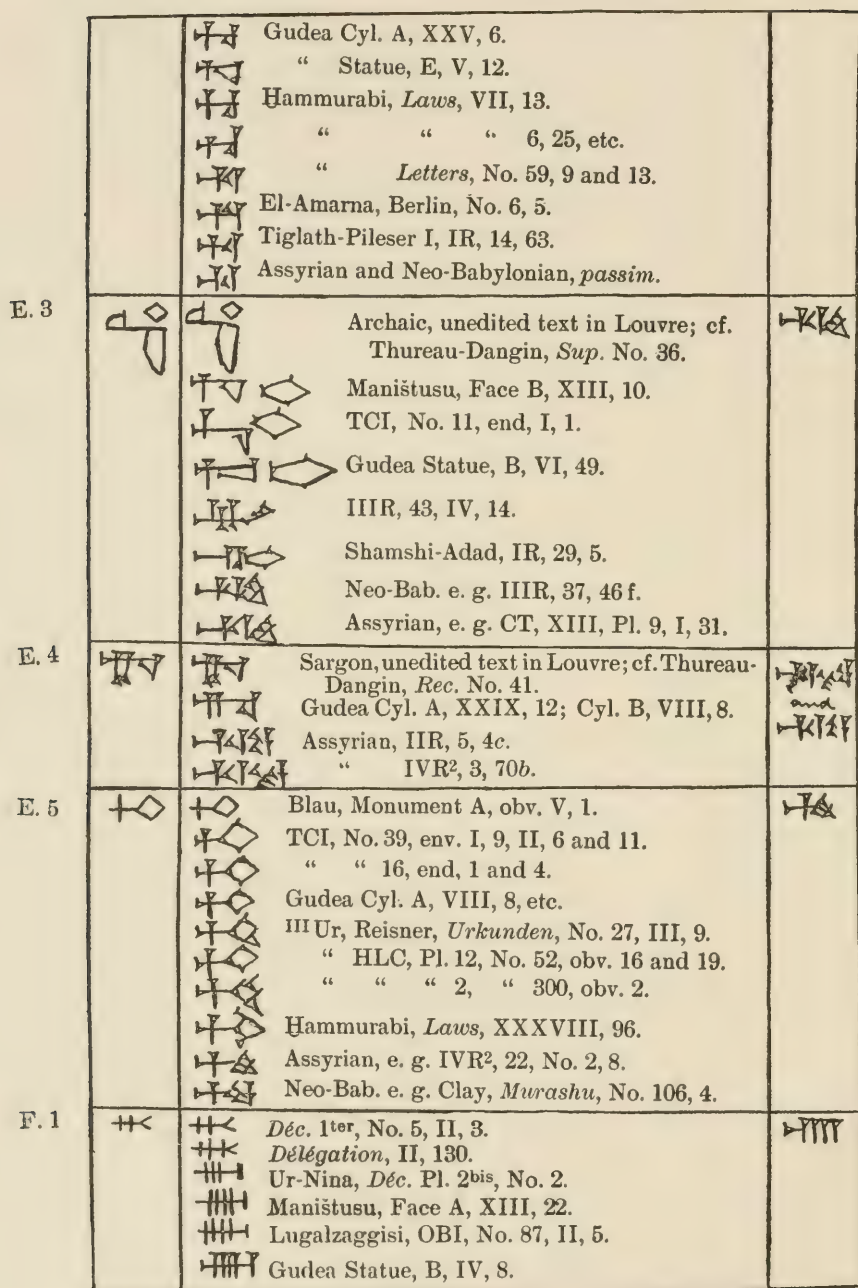 Gudea Cyl. A, XXV, 6.
“ Statue, E, V, 12.
Ḫammurabi, Laws, VII, 13.
“ “ “ 6, 25, etc.
“ Letters, No. 59, 9 and 13.
El-Amarna, Berlin, No. 6, 5.
Tiglath-Pileser I, IR, 14, 63.
Assyrian and Neo-Babylonian, passim.
E. 3
Archaic, unedited text in Louvre; cf.
Thureau-Dangin, Sup. No. 36.
Maništusu, Face B, XIII, 10.
TCI, No. 11, end, I, 1.
Gudea Statue, B, VI, 49.
IIIR, 43, IV, 14.
Shamshi-Adad, IR, 29, 5.
Neo-Bab. e. g. IIIR, 37, 46 f.
Assyrian, e. g. CT, XIII, Pl. 9, I, 31.
E. 4
Sargon, unedited text in Louvre; cf. Thureau-
Dangin, Rec. No. 41.
and
Gudea Cyl. A, XXIX, 12; Cyl. B, VIII, 8.
Assyrian, IIR, 5, 4c.
“ IVR², 3, 70b.
E. 5
Blau, Monument A, obv. V, 1.
TCI, No. 39, env. I, 9, II, 6 and 11.
“ “ 16, end, 1 and 4.
Gudea Cyl. A, VIII, 8, etc.
III Ur, Reisner, Urkunden, No. 27, III, 9.
“ HLC, Pl. 12, No. 52, obv. 16 and 19.
“ “ “ 2, “ 300, obv. 2.
Ḫammurabi, Laws, XXXVIII, 96.
Assyrian, e. g. IVR², 22, No. 2, 8.
Neo-Bab. e. g. Clay, Murashu, No. 106, 4.
F. 1
Déc. 1ter, No. 5, II, 3.
Délégation, II, 130.
Ur-Nina, Déc. Pl. 2bis, No. 2.
Maništusu, Face A, XIII, 22.
Lugalzaggisi, OBI, No. 87, II, 5.
Gudea Statue, B, IV, 8.